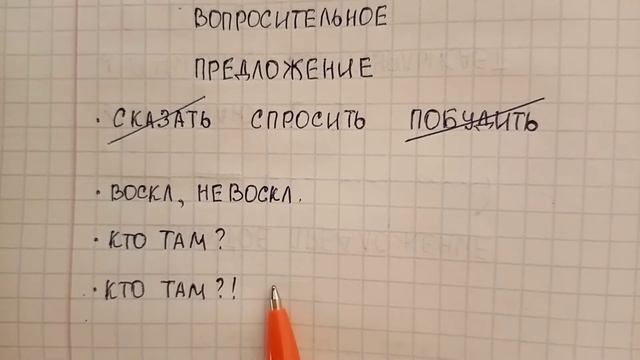 ВОПРОСИТЕЛЬНОЕ
ПРЕДЛОЖЕНИЕ
· СКАЗАТЬ СПРОСИТЬ ПОБУДИТЬ
· ВОСКЛ, НЕВОСКЛ.
· КТО ТАМ?
· КТО ТАМ?!